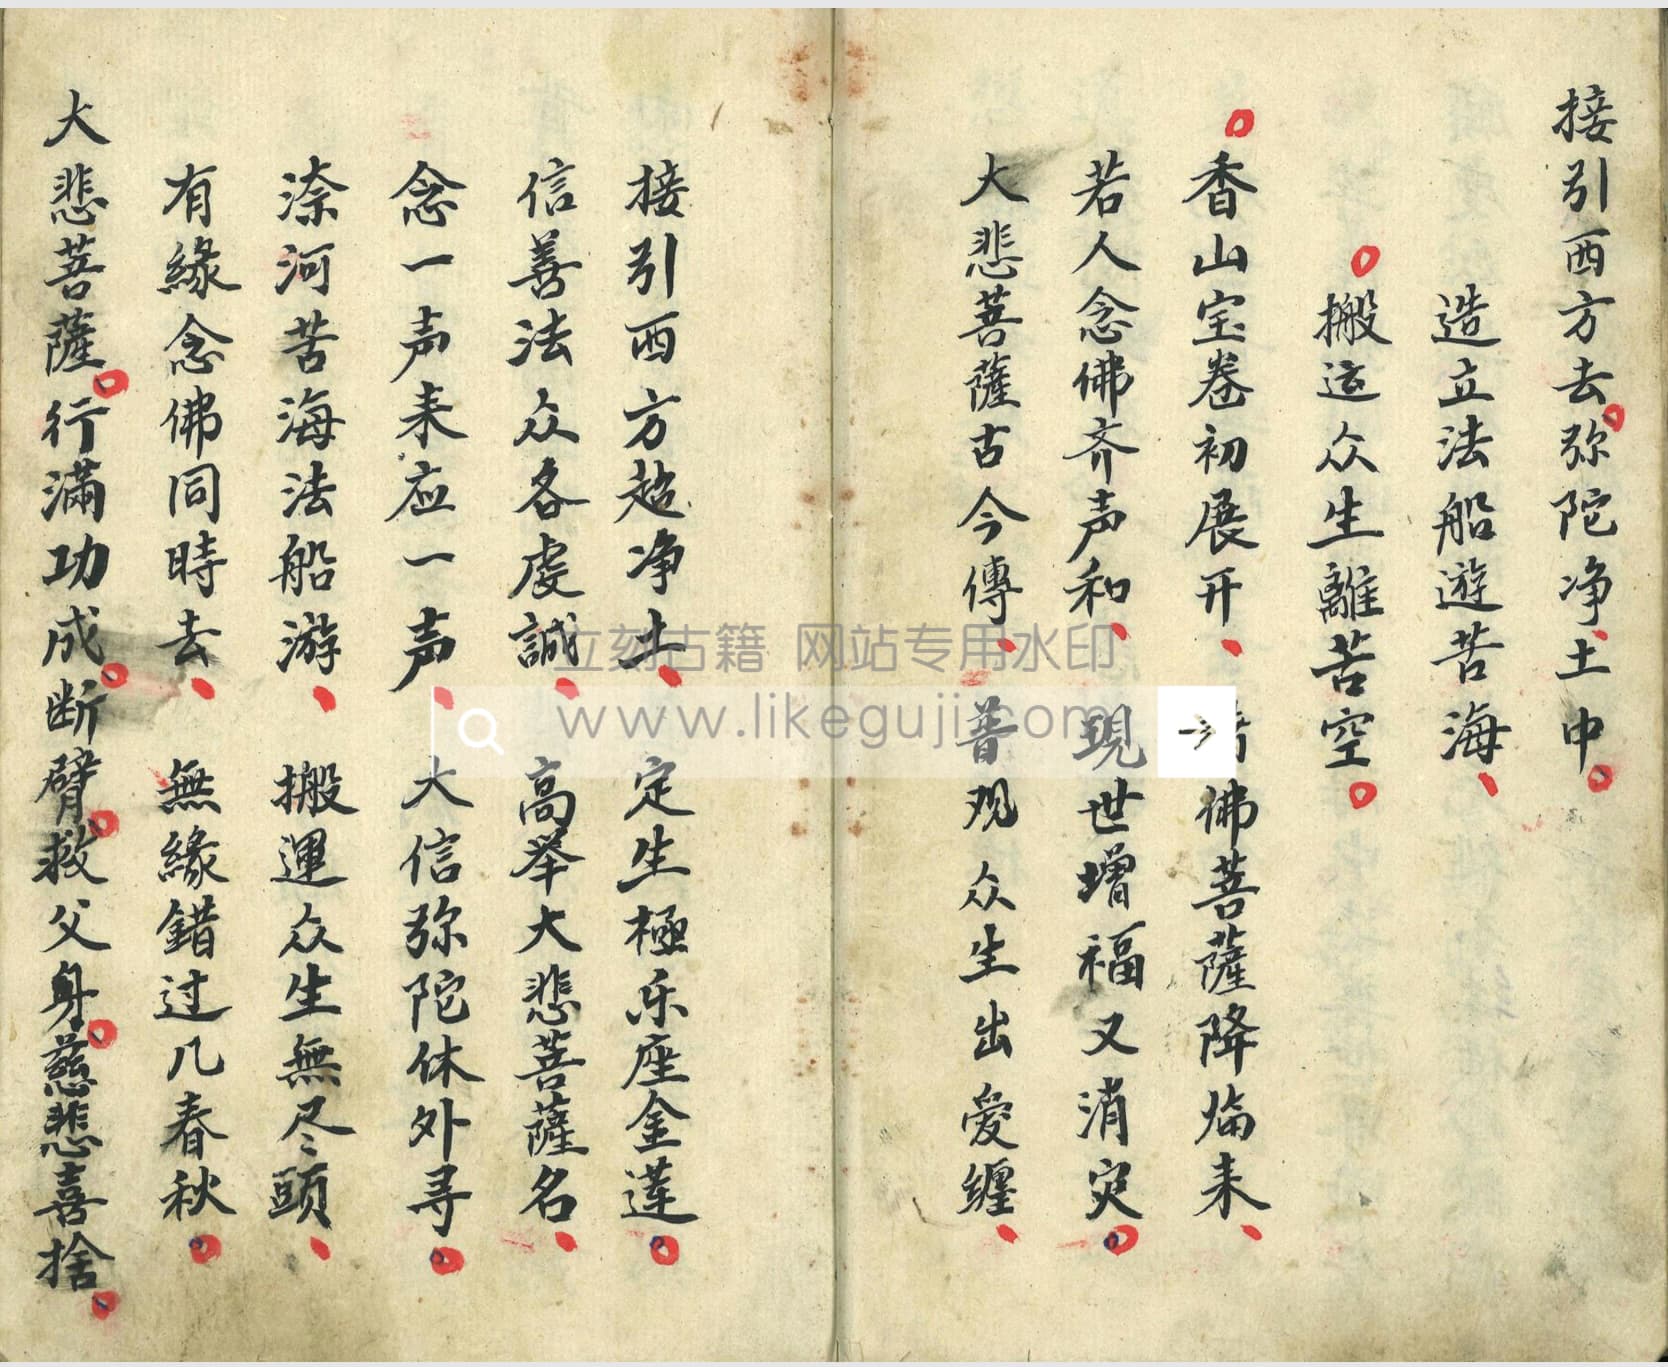 接引西方去。弥陀净土中。
造立法船遊苦海、
搬运众生離苦空。
香山宝卷初展开、佛菩薩降临来、
若人念佛齐声和、現世增福又消灾。
大悲菩薩古今傳、普观众生出爱缠、
接引西方超净土、定生極乐座金莲。
信善法众各虔誠、高举大悲菩薩名、
念一声来应一声、大信弥陀休外寻。
渿河苦海法船游、搬運众生無尽頭、
有緣念佛同時去、無緣錯过几春秋。
大悲菩薩。行滿功成。断臂救父身。慈悲喜捨。
立刻古籍 网站专用水印
www.likeguji.com